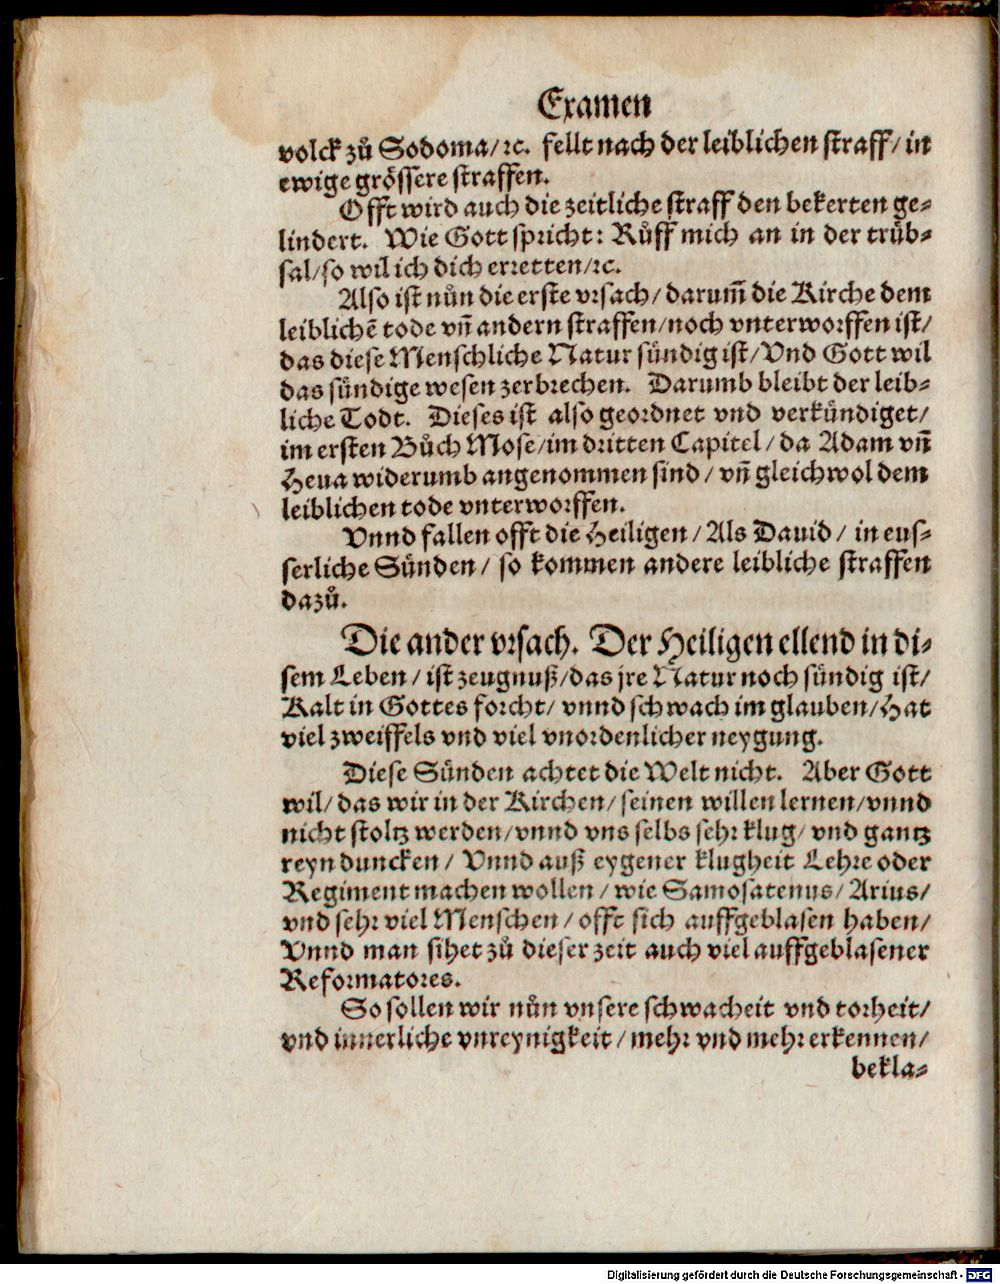 Examen
volck zů Sodoma/ ꝛc. fellt nach der leiblichen straff/ in
ewige grössere straffen.
Offt wird auch die zeitliche straff den bekerten ge⸗
lindert. Wie Gott spricht: Růff mich an in der trüb⸗
sal/ so wil ich dich erretten/ ꝛc.
Also ist nůn die erste vrsach/ darum̃ die Kirche dem
leiblichẽ tode vñ andern straffen/ noch vnterworffen ist/
das diese Menschliche Natur sündig ist/ Vnd Gott wil
das sündige wesen zerbrechen. Darumb bleibt der leib⸗
liche Todt. Dieses ist also geordnet vnd verkündiget/
im ersten Bůch Mose/ im dritten Capitel/ da Adam vñ
Heua widerumb angenommen sind/ vñ gleichwol dem
leiblichen tode vnterworffen.
Vnnd fallen offt die Heiligen/ Als Dauid/ in eus⸗
serliche Sünden/ so kommen andere leibliche straffen
dazů.
Die ander vrsach. Der Heiligen ellend in di⸗
sem Leben/ ist zeugnuß/ das jre Natur noch sündig ist/
Kalt in Gottes forcht/ vnnd schwach im glauben/ Hat
viel zweiffels vnd viel vnordenlicher neygung.
Diese Sünden achtet die Welt nicht. Aber Gott
wil/ das wir in der Kirchen/ seinen willen lernen/ vnnd
nicht stoltz werden/ vnnd vns selbs sehr klug/ vnd gantz
reyn duncken/ Vnnd auß eygener klugheit Lehre oder
Regiment machen wollen/ wie Samosatenus/ Arius/
vnd sehr viel Menschen/ offt sich auffgeblasen haben/
Vnnd man sihet zů dieser zeit auch viel auffgeblasener
Reformatores.
So sollen wir nůn vnsere schwacheit vnd torheit/
vnd innerliche vnreynigkeit/ mehr vnd mehr erkennen/
bekla⸗
Digitalisierung gefördert durch die Deutsche Forschungsgemeinschaft - DFG